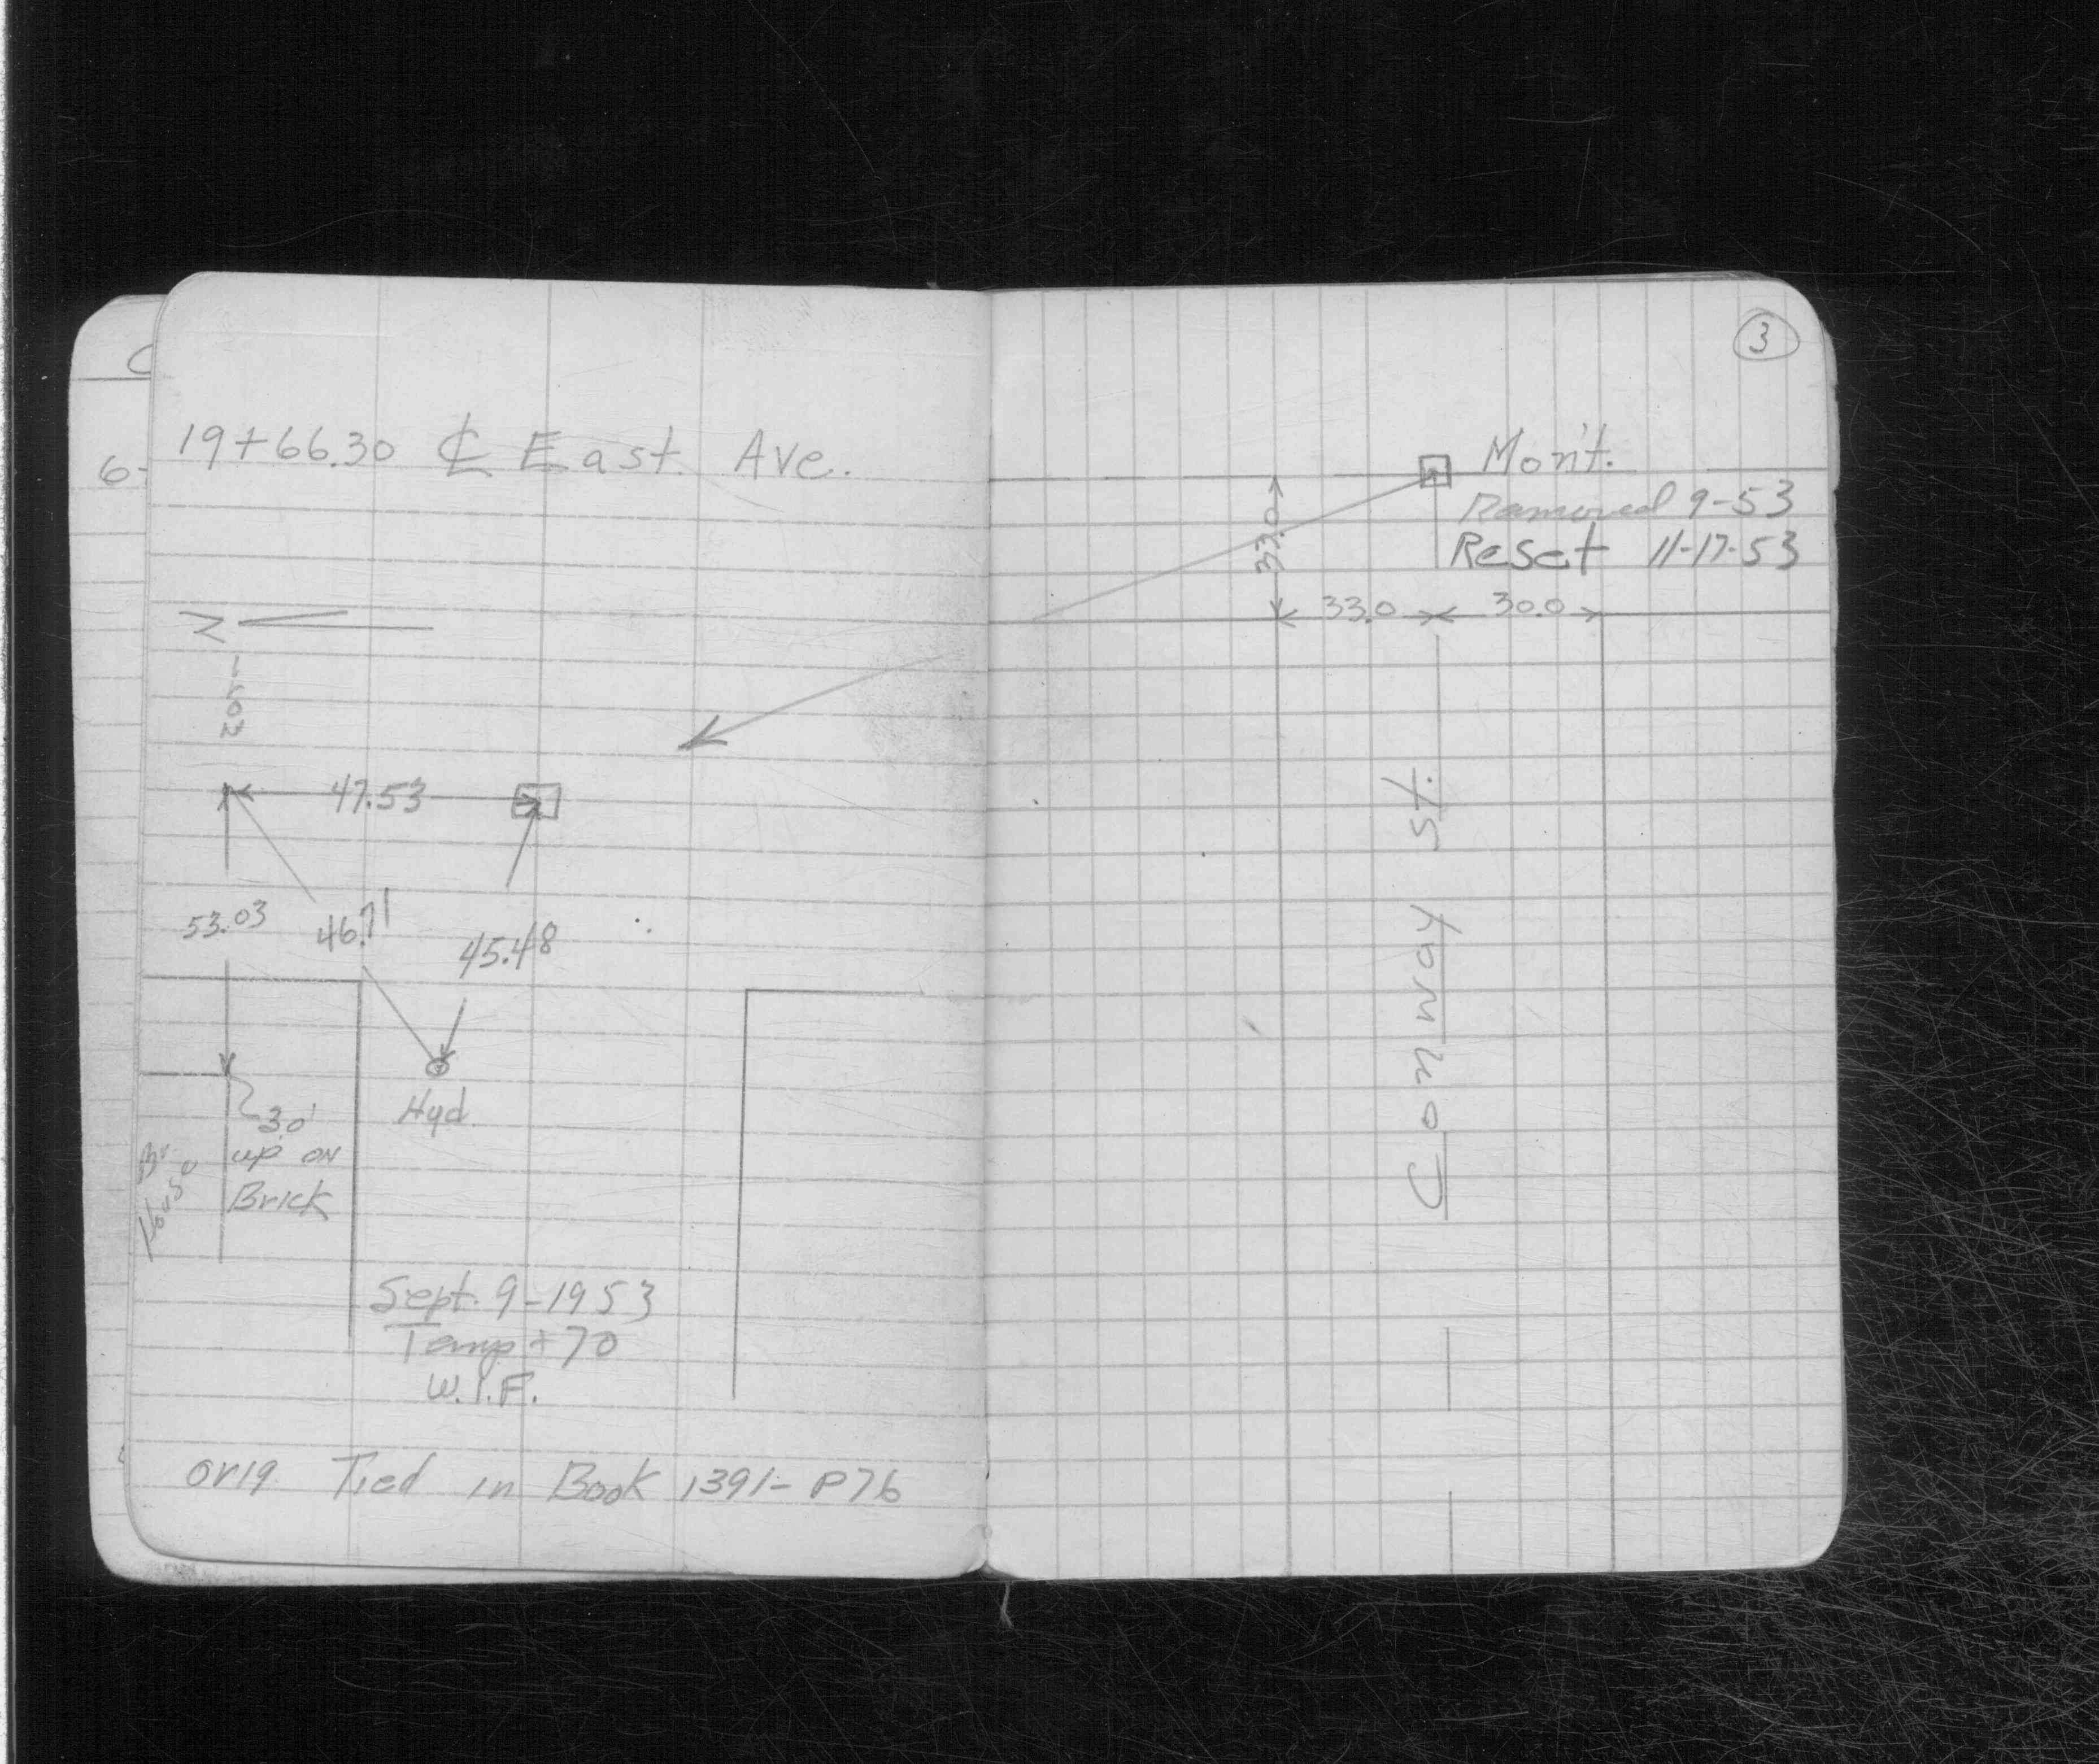 3
19+66.30 ℄ East Ave.
Mon't.
Removed 9-53
Reset 11-17-53
33.0
33.0
30.0
N
Iron
47.53
53.03
46.71
45.48
Hyd.
3.0'
up on
Brick
Br
House
Conway St.
Sept. 9-1953
Temp +70
W.I.F.
Orig Tied in Book 1391-P76
6-